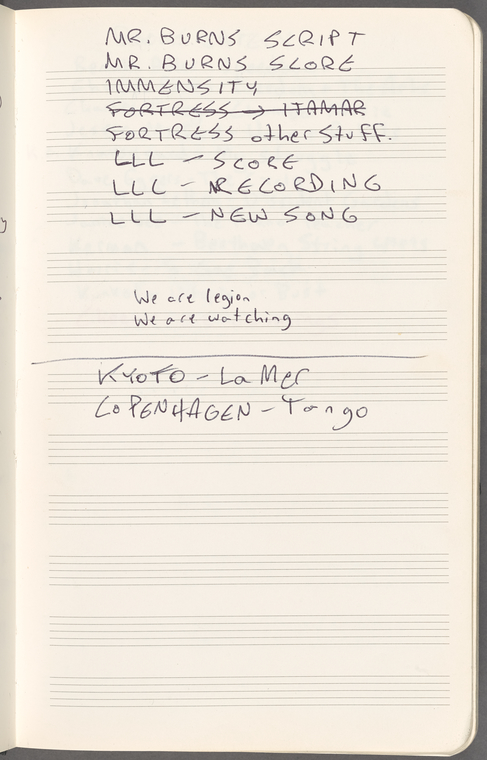 MR. BURNS SCRIPT
MR. BURNS SCORE
IMMENSITY
FORTRESS → ITAMAR
FORTRESS other Stuff.
LLL - SCORE
LLL - RECORDING
LLL - NEW SONG
We are legion
We are watching
KYOTO - La Mer
COPENHAGEN - Tango